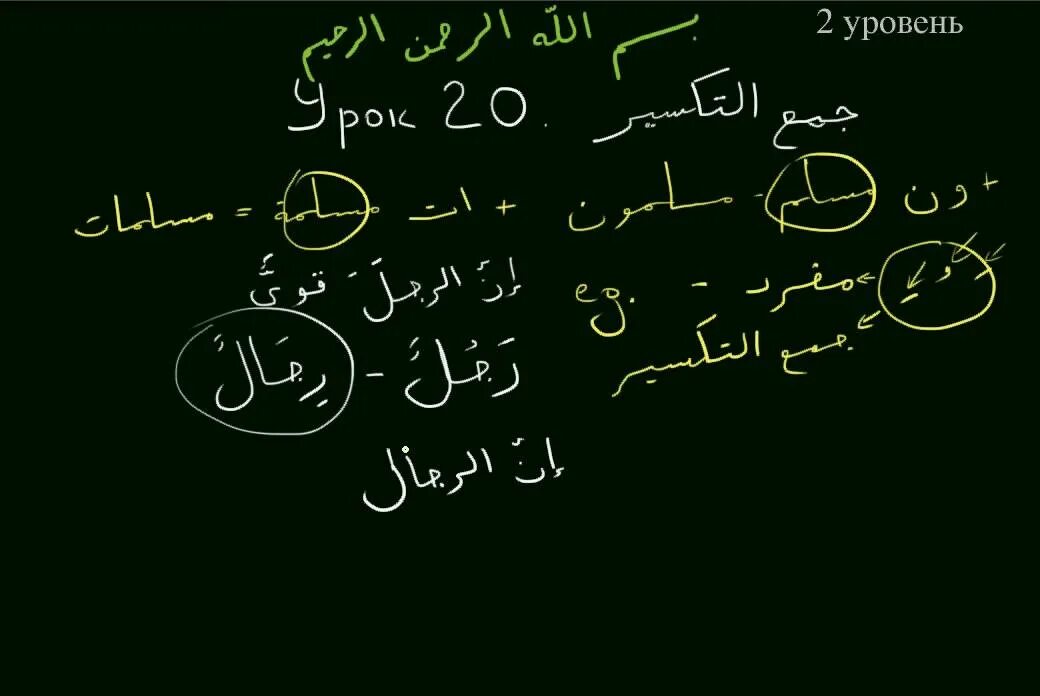 2 уровень
بسم الله الرحمن الرحيم
Урок 20. جمع التكسير
+ ون مسلم - مسلمون
+ ات مسلمة = مسلمات
مفرد - ед.
جمع التكسير
إنَّ الرجلَ قويٌّ
رَجُلٌ - رِجَالٌ
إنَّ الرجال